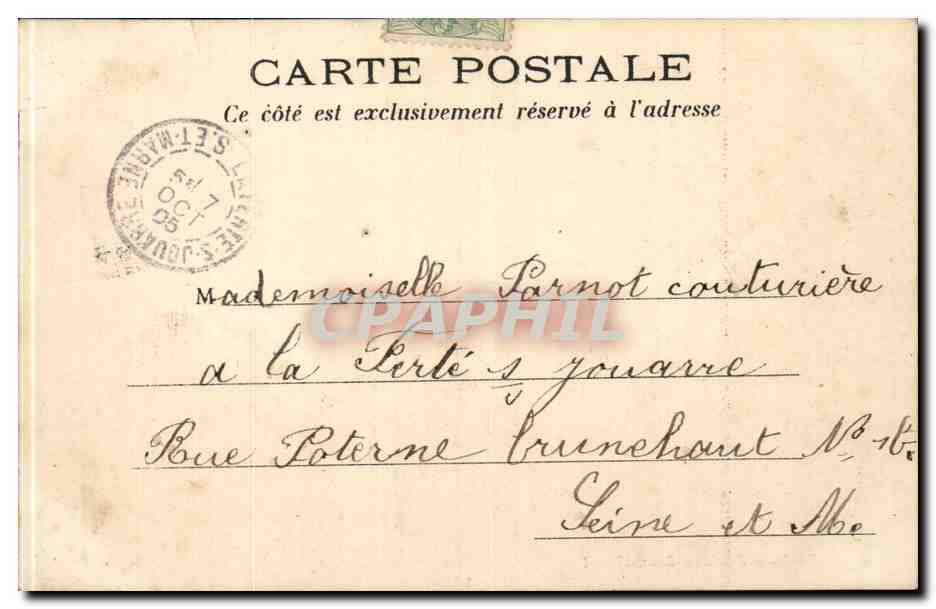 CARTE POSTALE
Ce côté est exclusivement réservé à l'adresse
LA FERTE-S-JOUARRE
S. ET-MARNE
7
OCT
05
Mademoiselle Parnot couturière
CPAPHIL
a la Ferté s Jouarre
Rue Poterne brunehaut No
Seine et Me